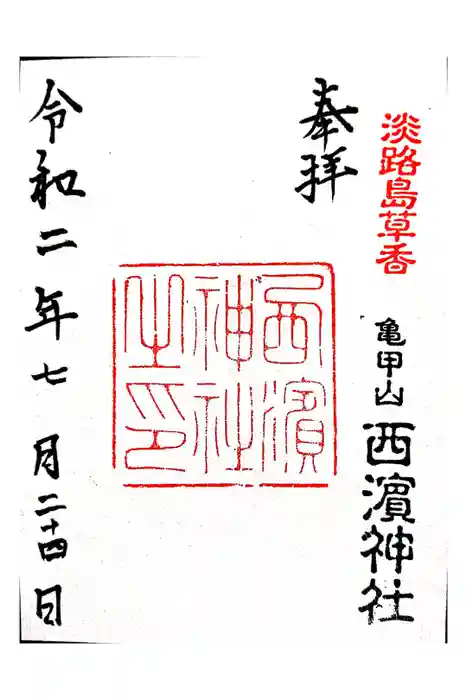 淡路島草香
亀甲山西濱神社
奉拝
西濱
神社
之印
令和二年七月二十四日